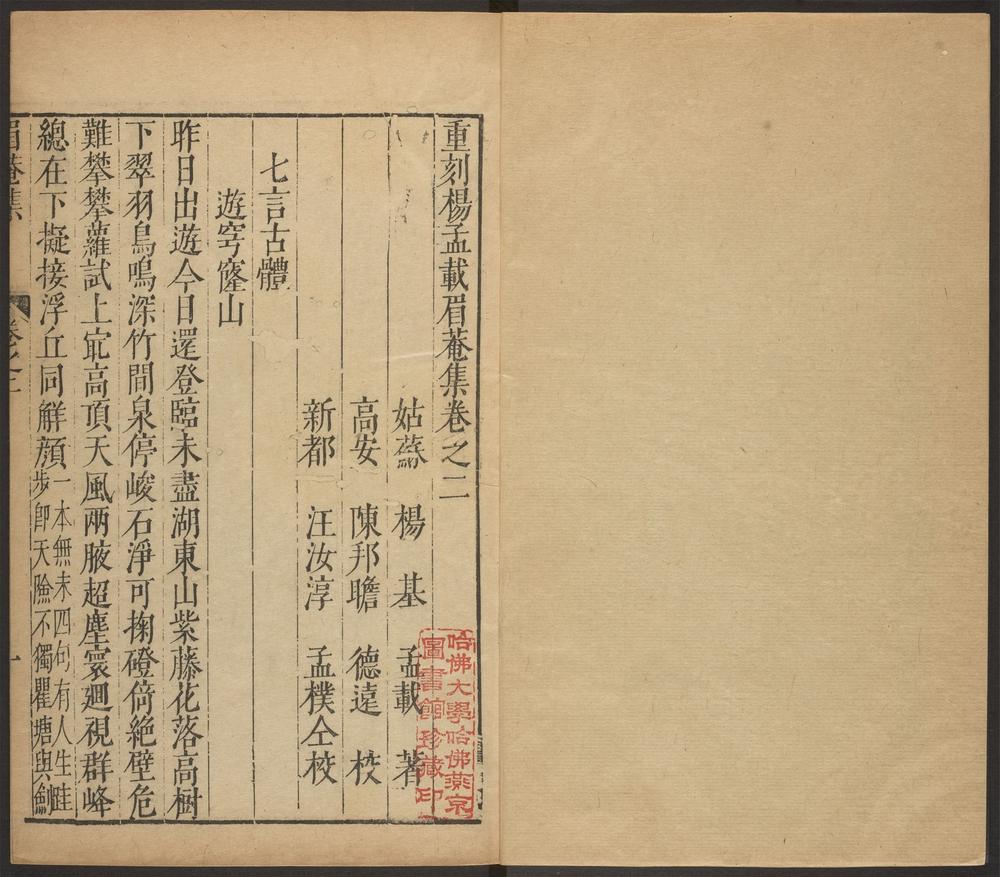 重刻楊孟載眉菴集卷之二
姑蘇 楊 基 孟載 著
高安 陳邦瞻 德遠 校
新都 汪汝淳 孟樸仝校
七言古體
遊穹窿山
昨日出遊今日還登臨未盡湖東山紫藤花落高樹
下翠羽鳥鳴深竹間泉停峻石淨可掬磴倚絶壁危
難攀攀蘿試上㝡高頂天風兩腋超塵寰廻視群峰
總在下擬接浮丘同觧顔一本無末四句有人生跬
步即天險不獨瞿塘與劍
眉菴集 卷之二 一
哈佛大學哈佛燕京
圖書館珍藏印